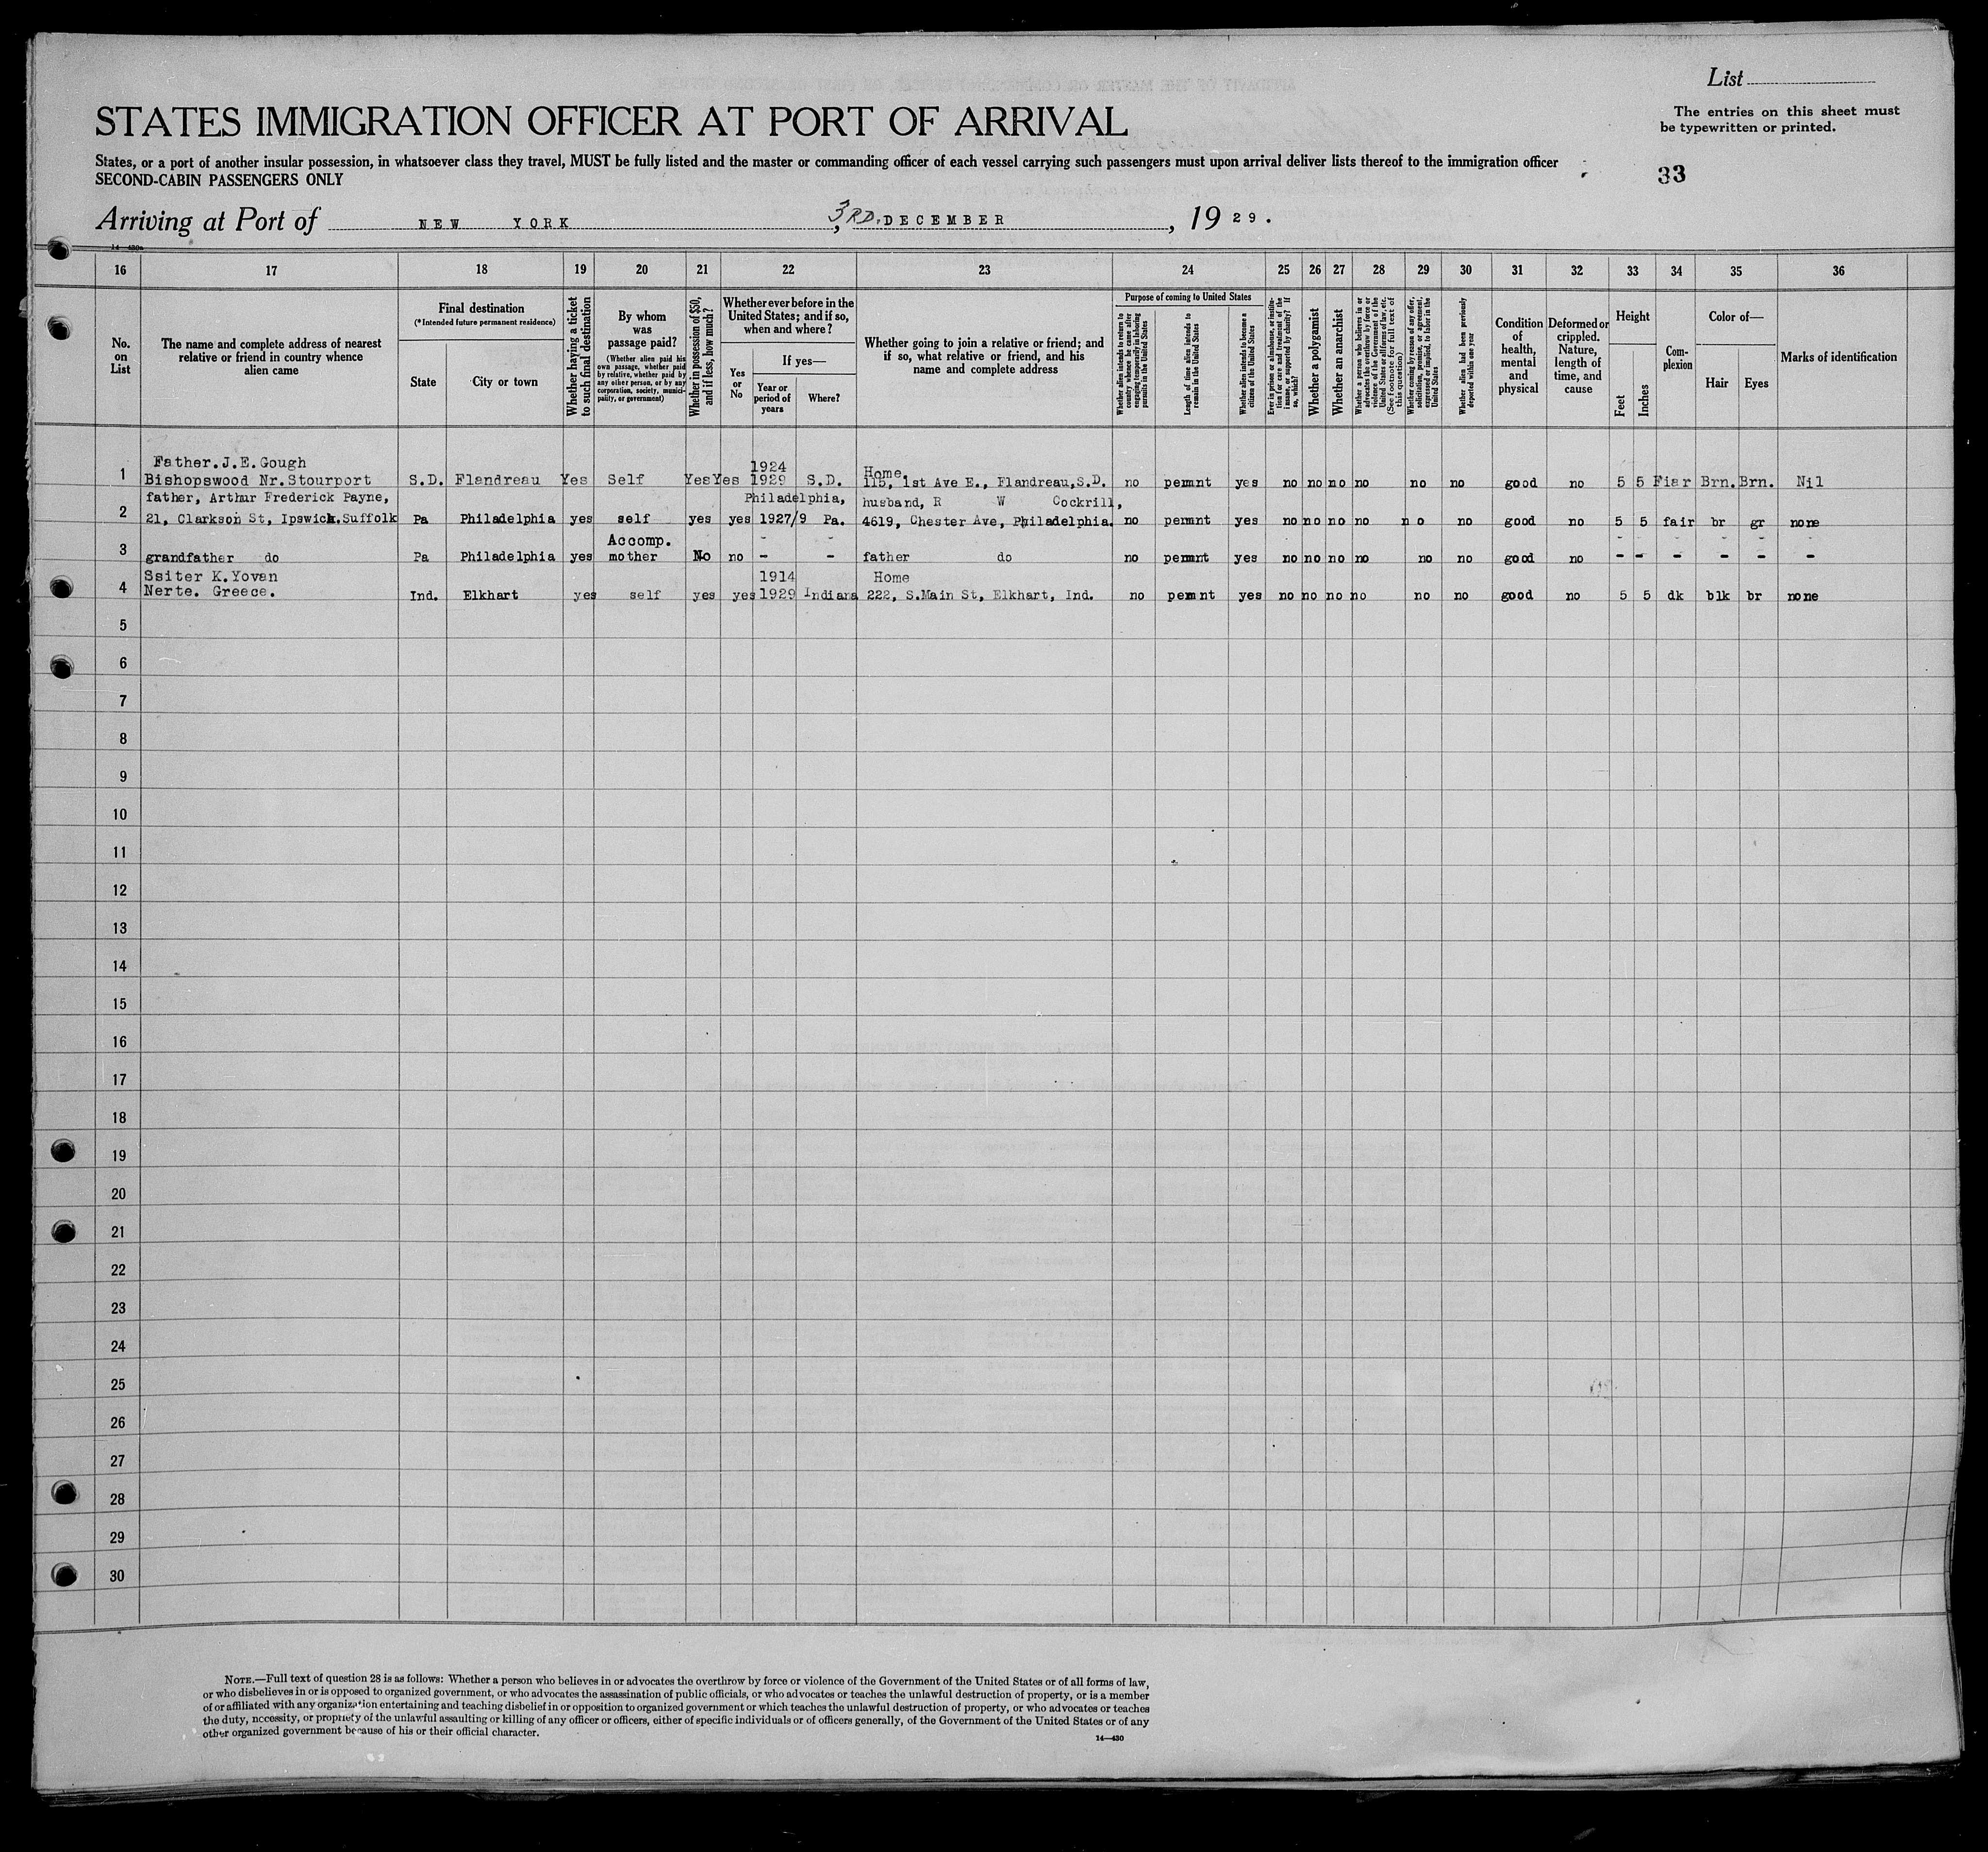 List
The entries on this sheet must
be typewritten or printed.
STATES IMMIGRATION OFFICER AT PORT OF ARRIVAL
States, or a port of another insular possession, in whatsoever class they travel, MUST be fully listed and the master or commanding officer of each vessel carrying such passengers must upon arrival deliver lists thereof to the immigration officer
SECOND-CABIN PASSENGERS ONLY
33
Arriving at Port of NEW YORK, 3RD. DECEMBER, 19 29.
14—430a
16 17 18 19 20 21 22 23 24 25 26 27 28 29 30 31 32 33 34 35 36
No. on List
The name and complete address of nearest relative or friend in country whence alien came
Final destination
(*Intended future permanent residence)
State
City or town
Whether having a ticket to such final destination
By whom was passage paid?
(Whether alien paid his own passage, whether paid by relative, whether paid by any other person, or by any corporation, society, municipality, or government)
Whether in possession of $50, and if less, how much?
Whether ever before in the United States; and if so, when and where?
Yes or No
If yes—
Year or period of years
Where?
Whether going to join a relative or friend; and if so, what relative or friend, and his name and complete address
Purpose of coming to United States
Whether alien intends to return to country whence he came after engaging temporarily in laboring pursuits in the United States
Length of time alien intends to remain in the United States
Whether alien intends to become a citizen of the United States
Ever in prison or almshouse, or institution for care and treatment of the insane, or supported by charity? If so, which?
Whether a polygamist
Whether an anarchist
Whether a person who believes in or advocates the overthrow by force or violence of the Government of the United States or all forms of law, etc. (See footnote for full text of this question)
Whether coming by reason of any offer, solicitation, promise, or agreement, expressed or implied, to labor in the United States
Whether alien had been previously deported within one year
Condition of health, mental and physical
Deformed or crippled. Nature, length of time, and cause
Height
Feet
Inches
Complexion
Color of—
Hair
Eyes
Marks of identification
Father. J.E.Gough 1924 Home
1 Bishopswood Nr.Stourport S.D. Flandreau Yes Self Yes Yes 1929 S.D. 115, 1st Ave E., Flandreau,S.D. no permnt yes no no no no no no good no 5 5 Fiar Brn. Brn. Nil
father, Arthur Frederick Payne, Philadelphia, husband, R W Cockrill,
2 21, Clarkson St, Ipswich.Suffolk Pa Philadelphia yes self yes yes 1927/9 Pa. 4619, Chester Ave, Philadelphia. no permnt yes no no no no no no good no 5 5 fair br gr none
Accomp. - -
3 grandfather do Pa Philadelphia yes mother No no - - father do no permnt yes no no no no no no good no - - - - - -
Ssiter K.Yovan 1914 Home
4 Nerte. Greece. Ind. Elkhart yes self yes yes 1929 Indiana 222, S.Main St, Elkhart, Ind. no pemnt yes no no no no no no good no 5 5 dk blk br none
5
6
7
8
9
10
11
12
13
14
15
16
17
18
19
20
21
22
23
24
25
26
27
28
29
30
NOTE.—Full text of question 28 is as follows: Whether a person who believes in or advocates the overthrow by force or violence of the Government of the United States or of all forms of law,
or who disbelieves in or is opposed to organized government, or who advocates the assassination of public officials, or who advocates or teaches the unlawful destruction of property, or is a member
of or affiliated with any organization entertaining and teaching disbelief in or opposition to organized government or which teaches the unlawful destruction of property, or who advocates or teaches
the duty, necessity, or propriety of the unlawful assaulting or killing of any officer or officers, either of specific individuals or of officers generally, of the Government of the United States or of any
other organized government because of his or their official character.
14—430